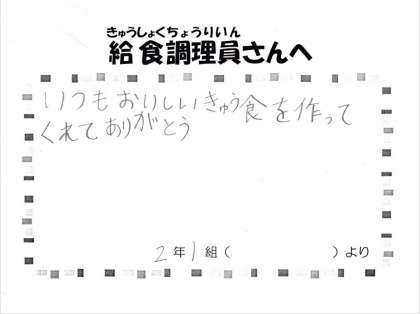 きゅうしょくちょうりいん
給食調理員さんへ
いつもおいしいきゅう食を作って
くれてありがとう
2年1組( )より